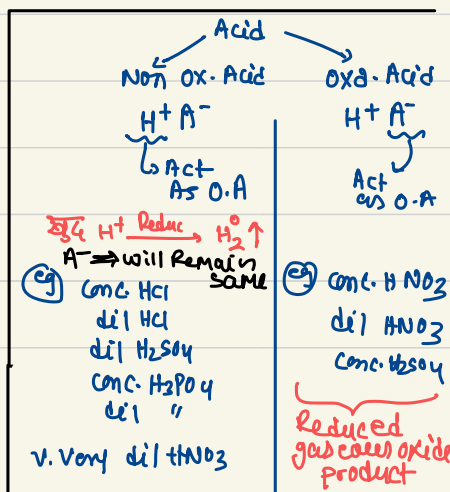 Acid
Non Ox. Acid
H⁺ A⁻
Act
As O.A
H⁺ Reduc → H₂⁰ ↑
A⁻ ⇒ will Remain
same
eg
Conc. HCl
dil HCl
dil H₂SO₄
Conc. H₃PO₄
dil "
V. Very dil HNO₃
Oxd. Acid
H⁺ A⁻
Act
as O.A
eg Conc. HNO₃
dil HNO₃
Conc. H₂SO₄
Reduced
gaseous oxide
product